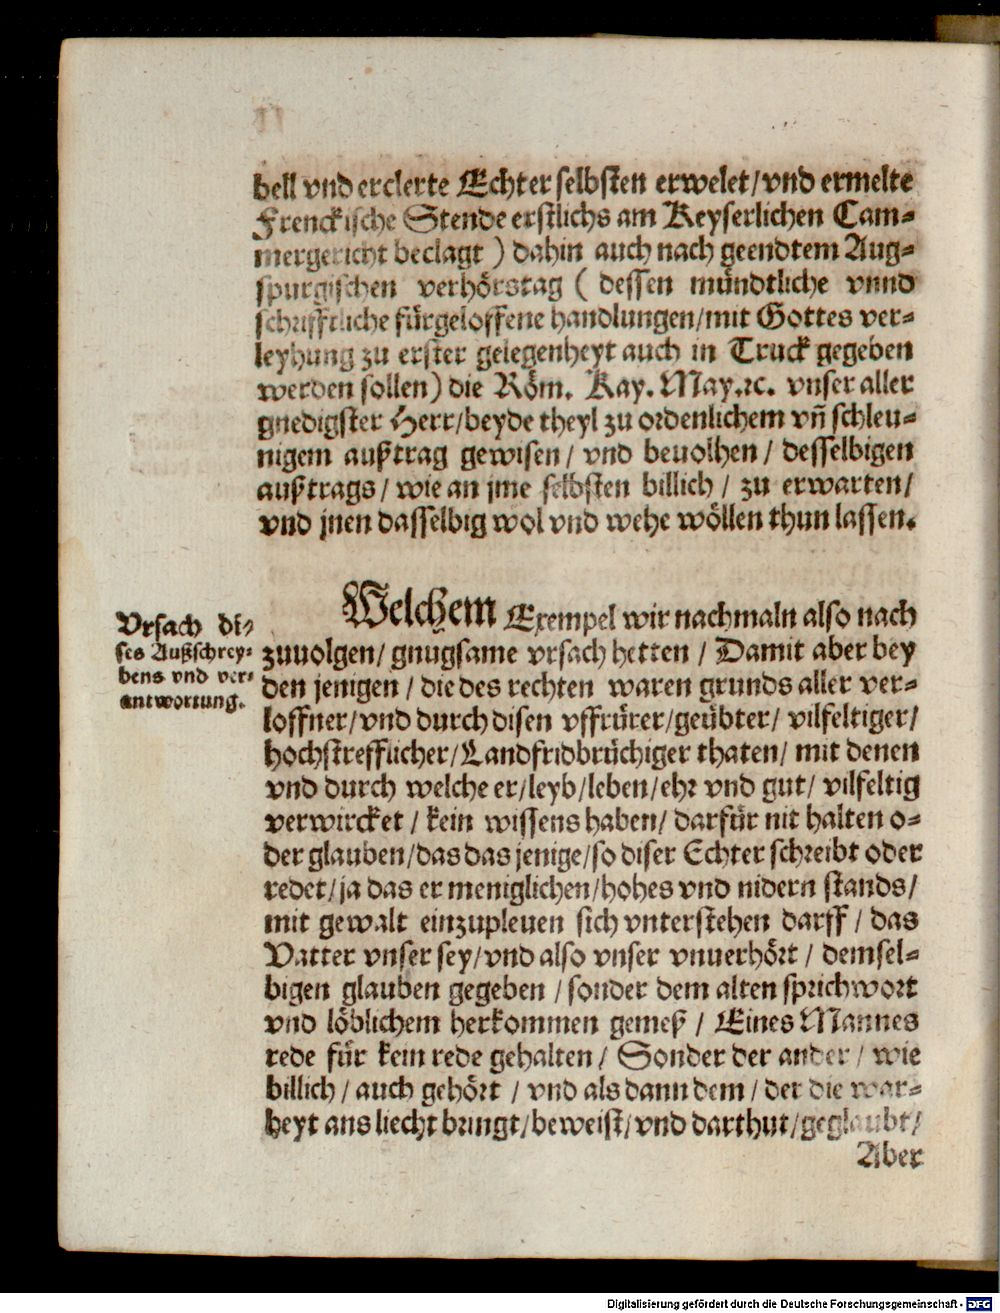 bell vnd erclerte Echter selbsten erwelet/vnd ermelte
Frenckische Stende erstlichs am Keyserlichen Cam-
mergericht beclagt ) dahin auch nach geendtem Aug-
spurgischen verhörstag ( dessen mündtliche vnnd
schrifftliche fürgeloffene handlungen/mit Gottes ver-
leyhung zu erster gelegenheyt auch in Truck gegeben
werden sollen) die Röm. Kay. May.ꝛc. vnser aller
gnedigster Herr/beyde theyl zu ordenlichem vn̄ schleu-
nigem außtrag gewisen/ vnd beuolhen/ desselbigen
außtrags/ wie an jme selbsten billich/ zu erwarten/
vnd jnen dasselbig wol vnd wehe wöllen thun lassen.
Vrsach di-
ses Außschrey-
bens vnd ver-
antwortung.
Welchem Exempel wir nachmaln also nach
zuuolgen/ gnugsame vrsach hetten / Damit aber bey
den jenigen / die des rechten waren grunds aller ver-
loffner/vnd durch disen vffrürer/geübter/ vilfeltiger/
hochstrefflicher/Landfridbrüchiger thaten/ mit denen
vnd durch welche er/leyb/leben/ehr vnd gut/ vilfeltig
verwircket / kein wissens haben/ darfür nit halten o-
der glauben/das das jenige/so diser Echter schreibt oder
redet/ja das er meniglichen/hohes vnd nidern stands/
mit gewalt einzupleuen sich vnterstehen darff / das
Vatter vnser sey/vnd also vnser vnuerhört / demsel-
bigen glauben gegeben /sonder dem alten sprichwort
vnd löblichem herkommen gemeß / Eines Mannes
rede für kein rede gehalten/ Sonder der ander/ wie
billich / auch gehört / vnd als dann dem/ der die war-
heyt ans liecht bringt/beweist/vnd darthut/geglaubt/
Aber
Digitalisierung gefördert durch die Deutsche Forschungsgemeinschaft - DFG